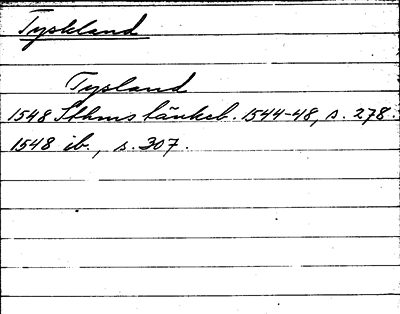 Tyskland
Tysland
1548 Sthms tänkeb. 1544-48, s. 278.
1548 ib., s. 307.